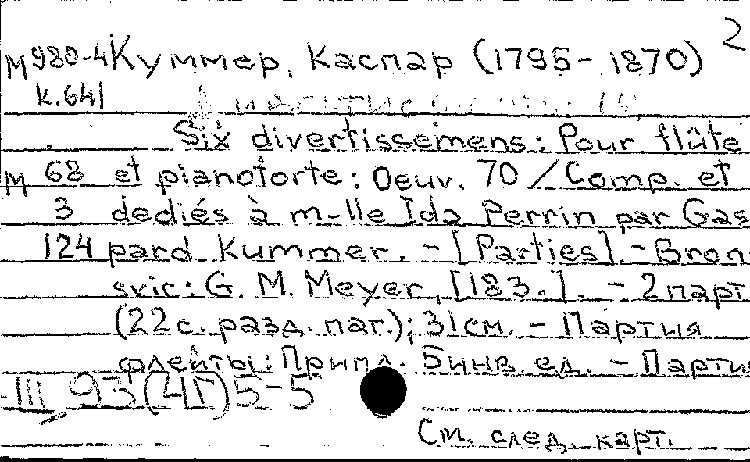 2
М 980-4 Куммер, Каспар (1795-1870)
к.641
Six divertissemens: Pour flûte
М 68 et pianoforte: Oeuv. 70 / Comp. et
3 dediés à m-lle Ida Perrin par Gas
124 pard Kummer. - [Parties]. - Bron
svic: G. M. Meyer, [183.]. - 2 парт.
(22 с. разд. паг.); 31 см. - Партия
флейты: Припл. 5 инв. ед. - Парти
III 93(4Г)5-5
См. след. карт.